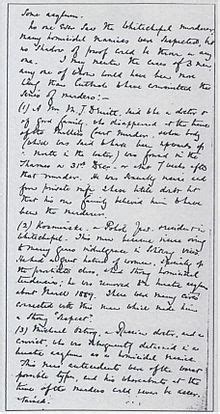 Some asylum.
No one ever saw the Whitechapel murderer,
many homicidal maniacs were suspected, but
no shadow of proof could be thrown on any
one. I may mention the cases of 3 men,
any one of whom would have been more
likely than Cutbush to have committed this
series of murders:-
(1) A Mr M. J. Druitt, said to be a doctor &
of good family, who disappeared at the time
of the Miller's Court murder, whose body
(which was said to have been upwards of
a month in the water) was found in the
Thames on 31st Decr. - or abt 7 weeks after
that murder. He was sexually insane and
from private info I have little doubt but
that his own family believed him to have
been the murderer.
(2) Kosminski, a Polish Jew, resident in
Whitechapel. This man became insane owing
to many years indulgence in solitary vices.
He had a great hatred of women, specially of
the prostitute class, & had strong homicidal
tendencies; he was removed to a lunatic asylum
about March 1889. There were many circs
connected with this man which made him
a strong "suspect".
(3) Michael Ostrog, a Russian doctor, and a
convict, who was subsequently detained in a
lunatic asylum as a homicidal maniac.
This man's antecedents were of the worst
possible type, and his whereabouts at the
time of the murders could never be ascer-
tained.